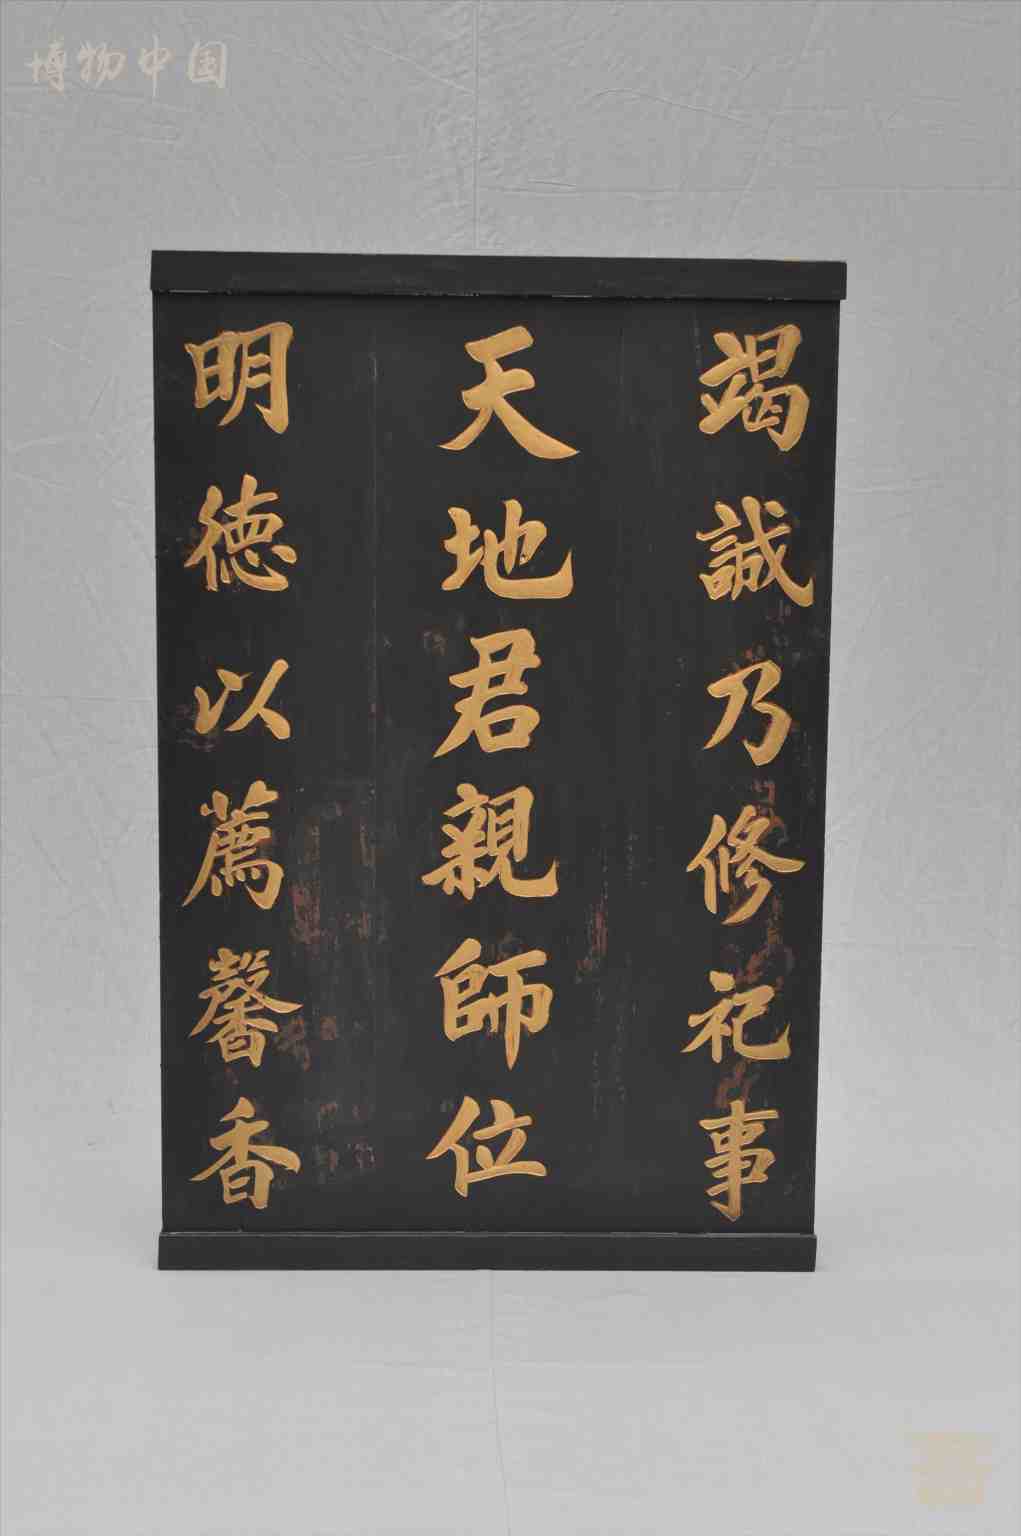 博物中国
竭誠乃修祀事
天地君親師位
明德以薦馨香